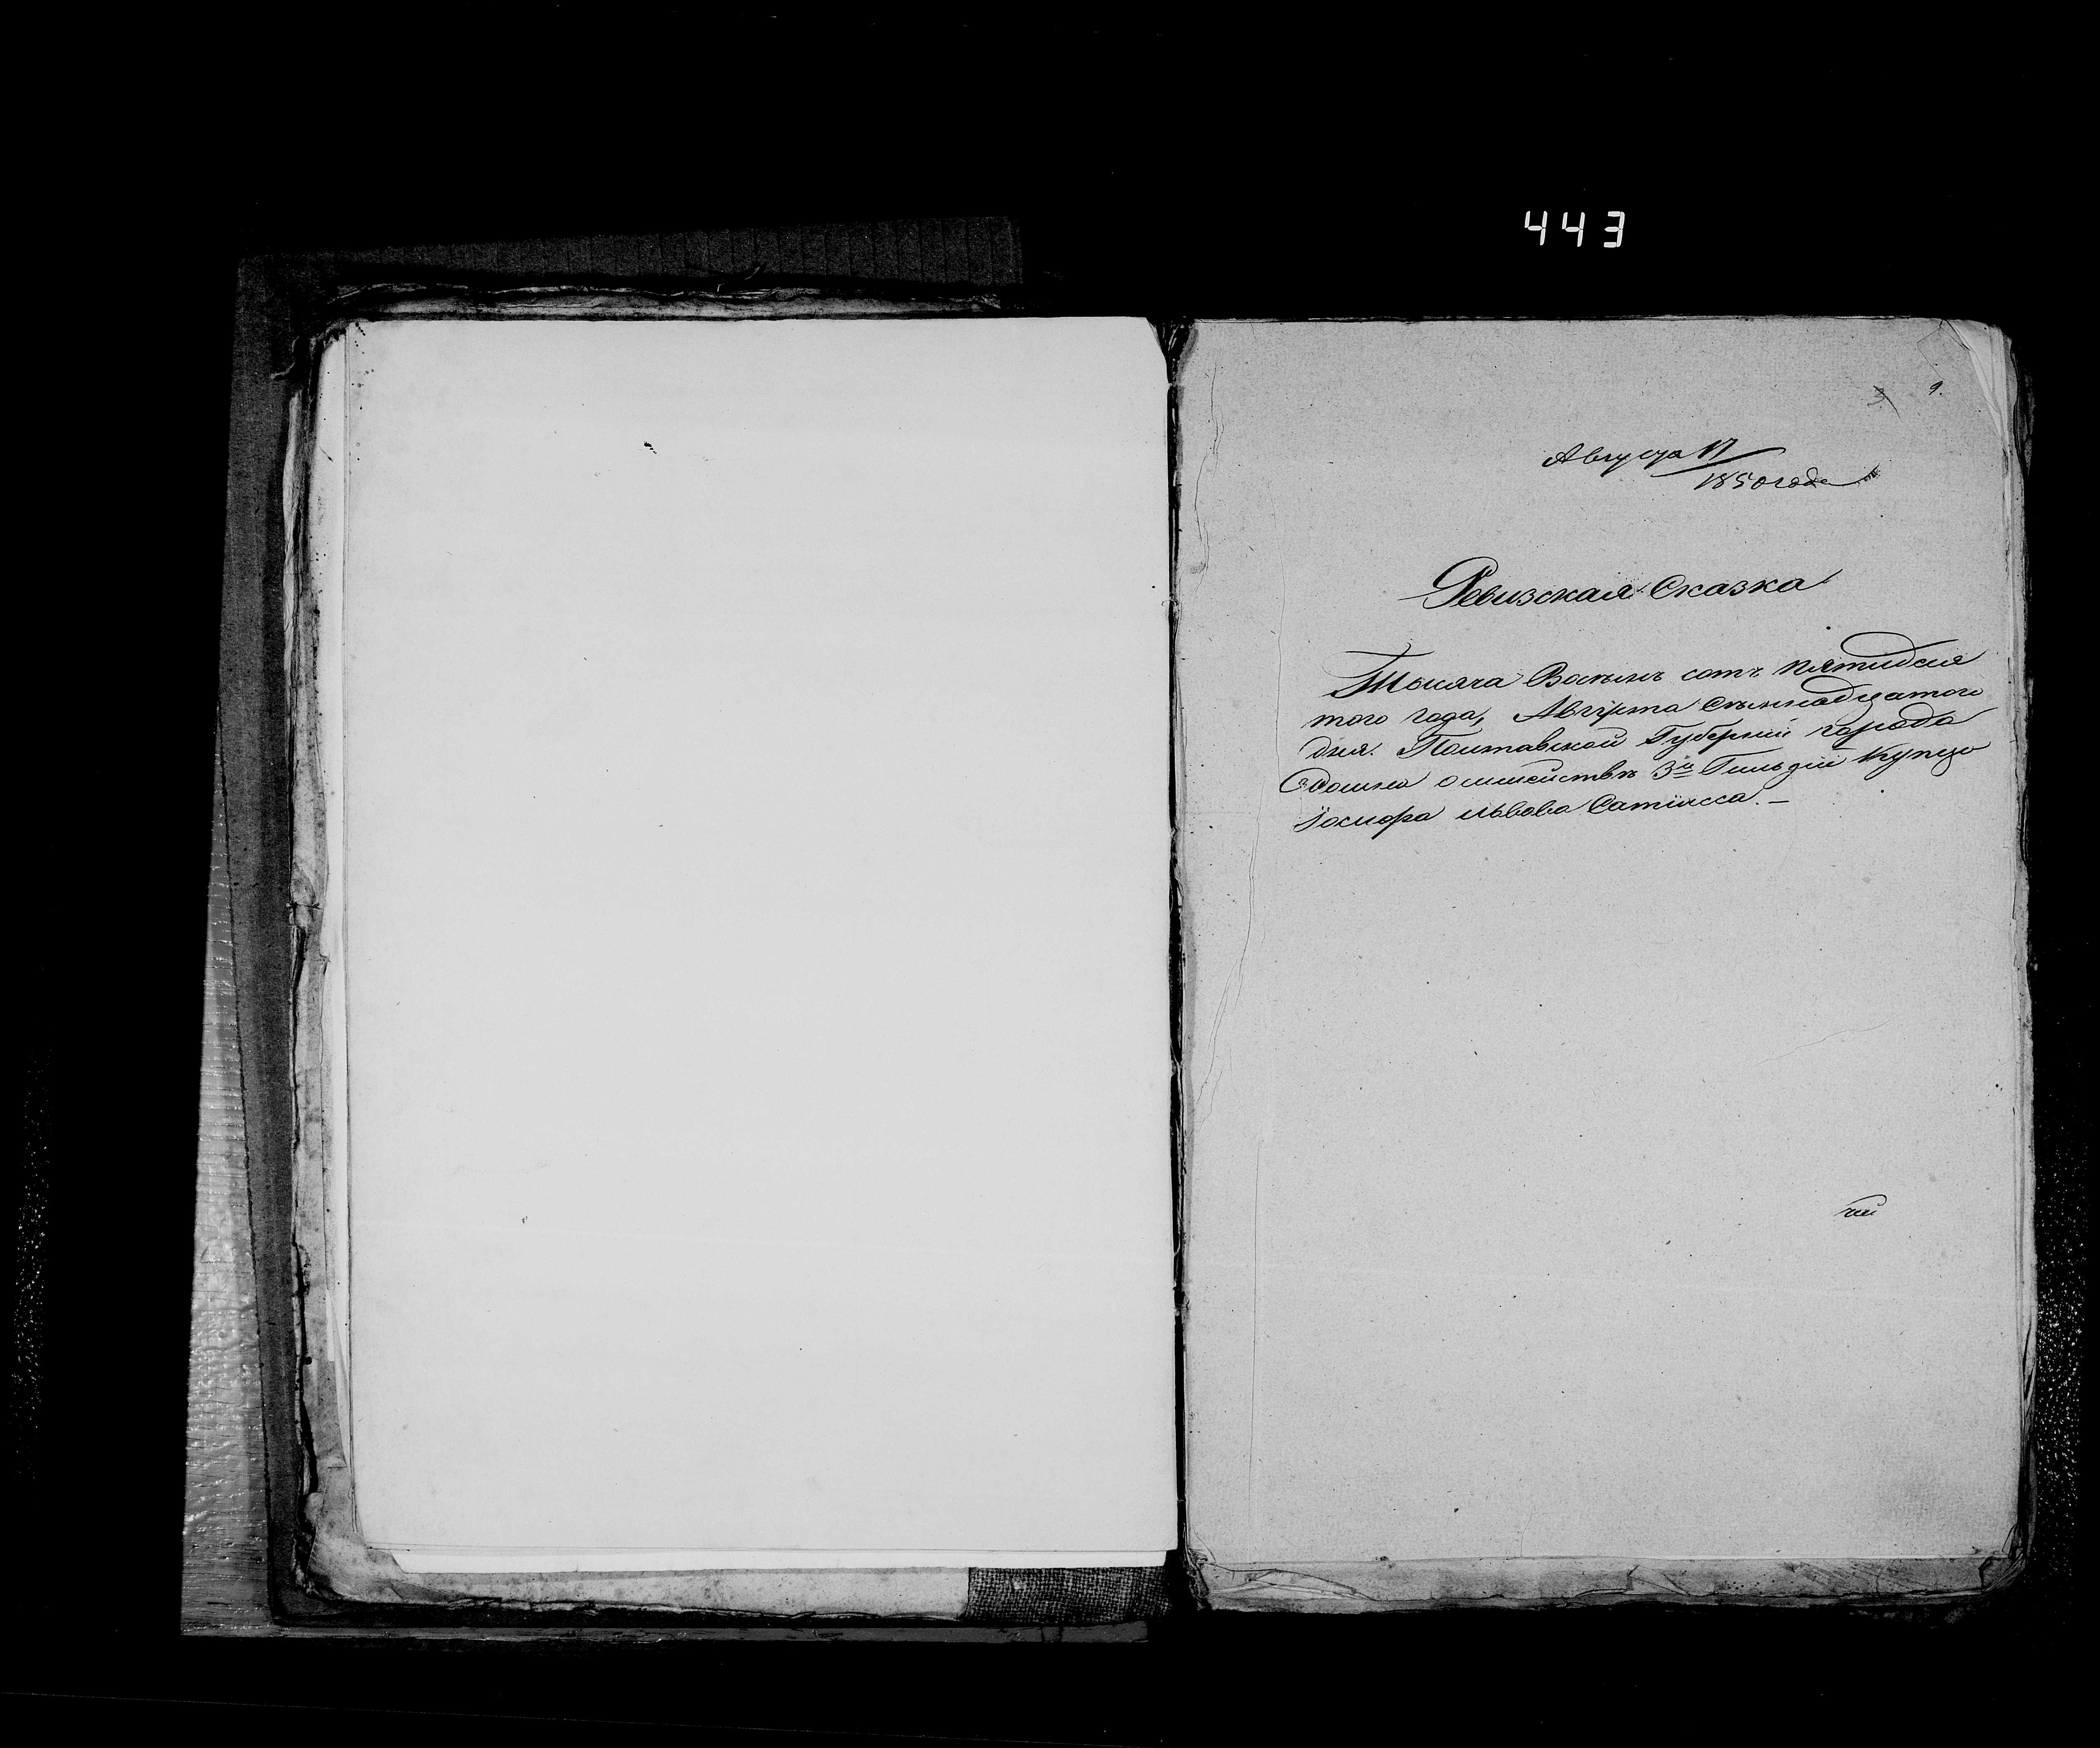 443
9.
Августа 17
1850 года
Ревизская Сказка
Тысяча Восемь сотъ пятидеся
того года, Августа Семнадцатого
дня. Полтавской Губерніи города
о семействе 3й Гильдіи Купца
Іосифа Львова